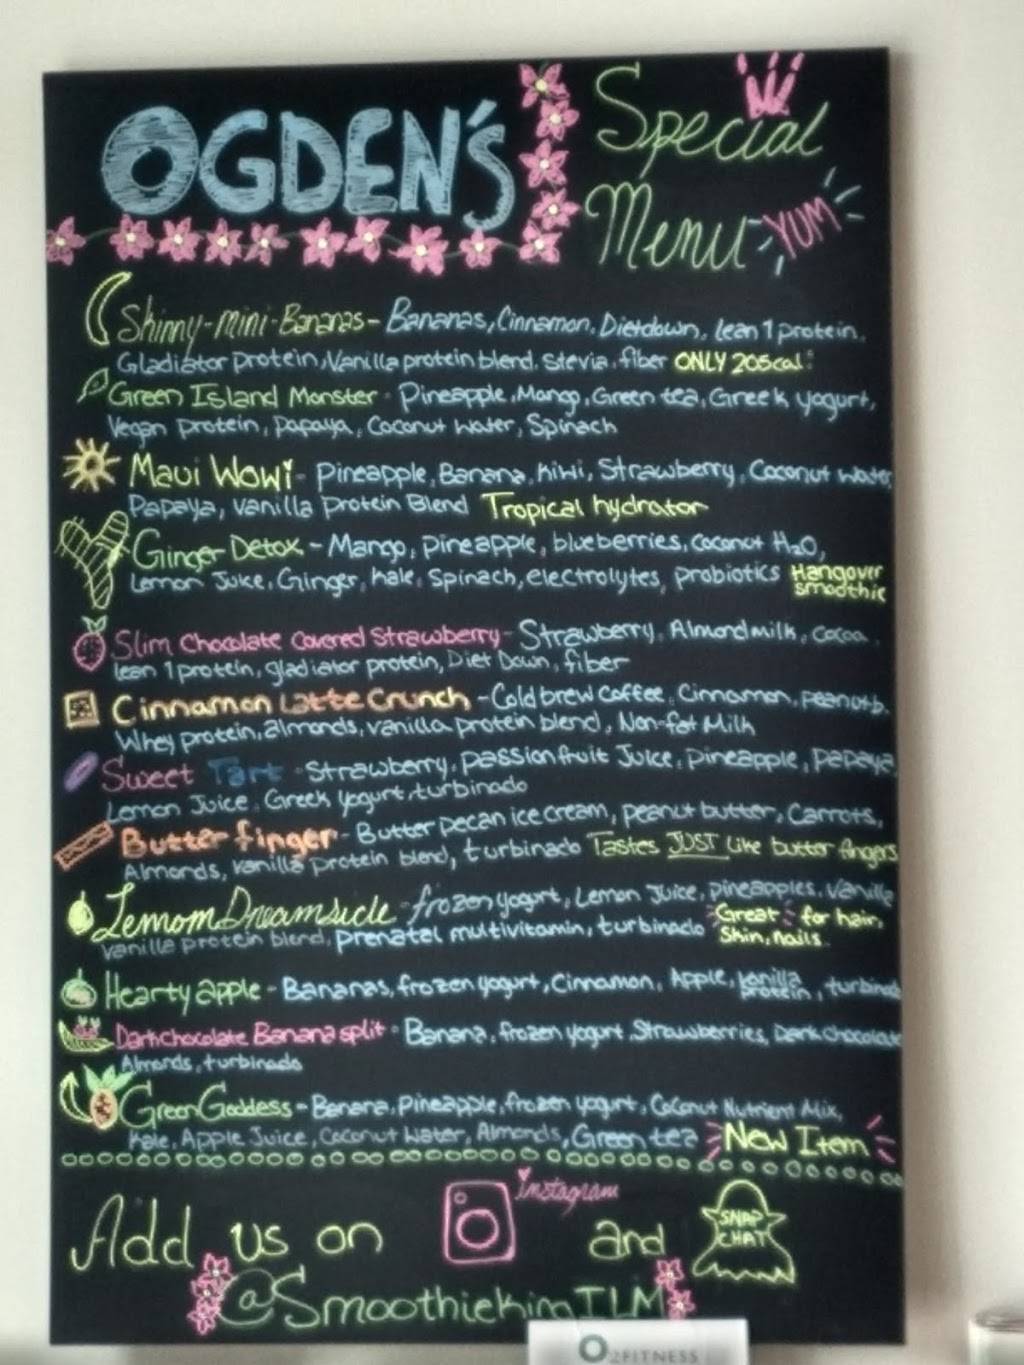 OGDEN'S
Special
Menu YUM
Skinny-mini-Bananas- Bananas, Cinnamon, Dietdown, lean 1 protein,
Gladiator protein, Vanilla protein blend, Stevia, fiber ONLY 205cal
Green Island Monster - Pineapple, Mango, Green tea, Greek yogurt,
Vegan protein, papaya, Coconut water, Spinach
Maui Wowi - Pineapple, Banana, kiwi, Strawberry, Coconut water,
Papaya, vanilla Protein Blend Tropical hydrator
Ginger Detox - Mango, pineapple, blueberries, coconut H2O,
Lemon Juice, Ginger, kale, Spinach, electrolytes, probiotics Hangover smoothie
Slim Chocolate covered Strawberry - Strawberry, Almondmilk, cocoa,
lean 1 protein, gladiator protein, Diet Down, fiber
Cinnamon Latte Crunch - Cold brew coffee, Cinnamon, peanutb.
Whey protein, almonds, vanilla protein blend, Non-fat Milk
Sweet Tart - Strawberry, passionfruit Juice, pineapple, papaya,
Lemon Juice, Greek yogurt, turbinado
Butterfinger - Butter pecan ice cream, peanut butter, Carrots,
Almonds, vanilla protein blend, turbinado Tastes JUST like butter fingers
Lemom Dreamsicle - frozen yogurt, Lemon Juice, pineapples, vanilla
vanilla protein blend, prenatal multivitamin, turbinado Great for hair, Skin, nails.
Hearty apple - Bananas, frozen yogurt, Cinnamon, Apple, vanilla protein, turbinado
Dark chocolate Banana split - Banana, frozen yogurt, Strawberries, Dark chocolate
Almonds, turbinado
Green Goddess - Banana, pineapple, frozen yogurt, Coconut Nutrient Mix,
Kale, Apple Juice, Coconut water, Almonds, Green tea New Item
Add us on instagram and SNAP CHAT
@SmoothiekimILM
O2FITNESS